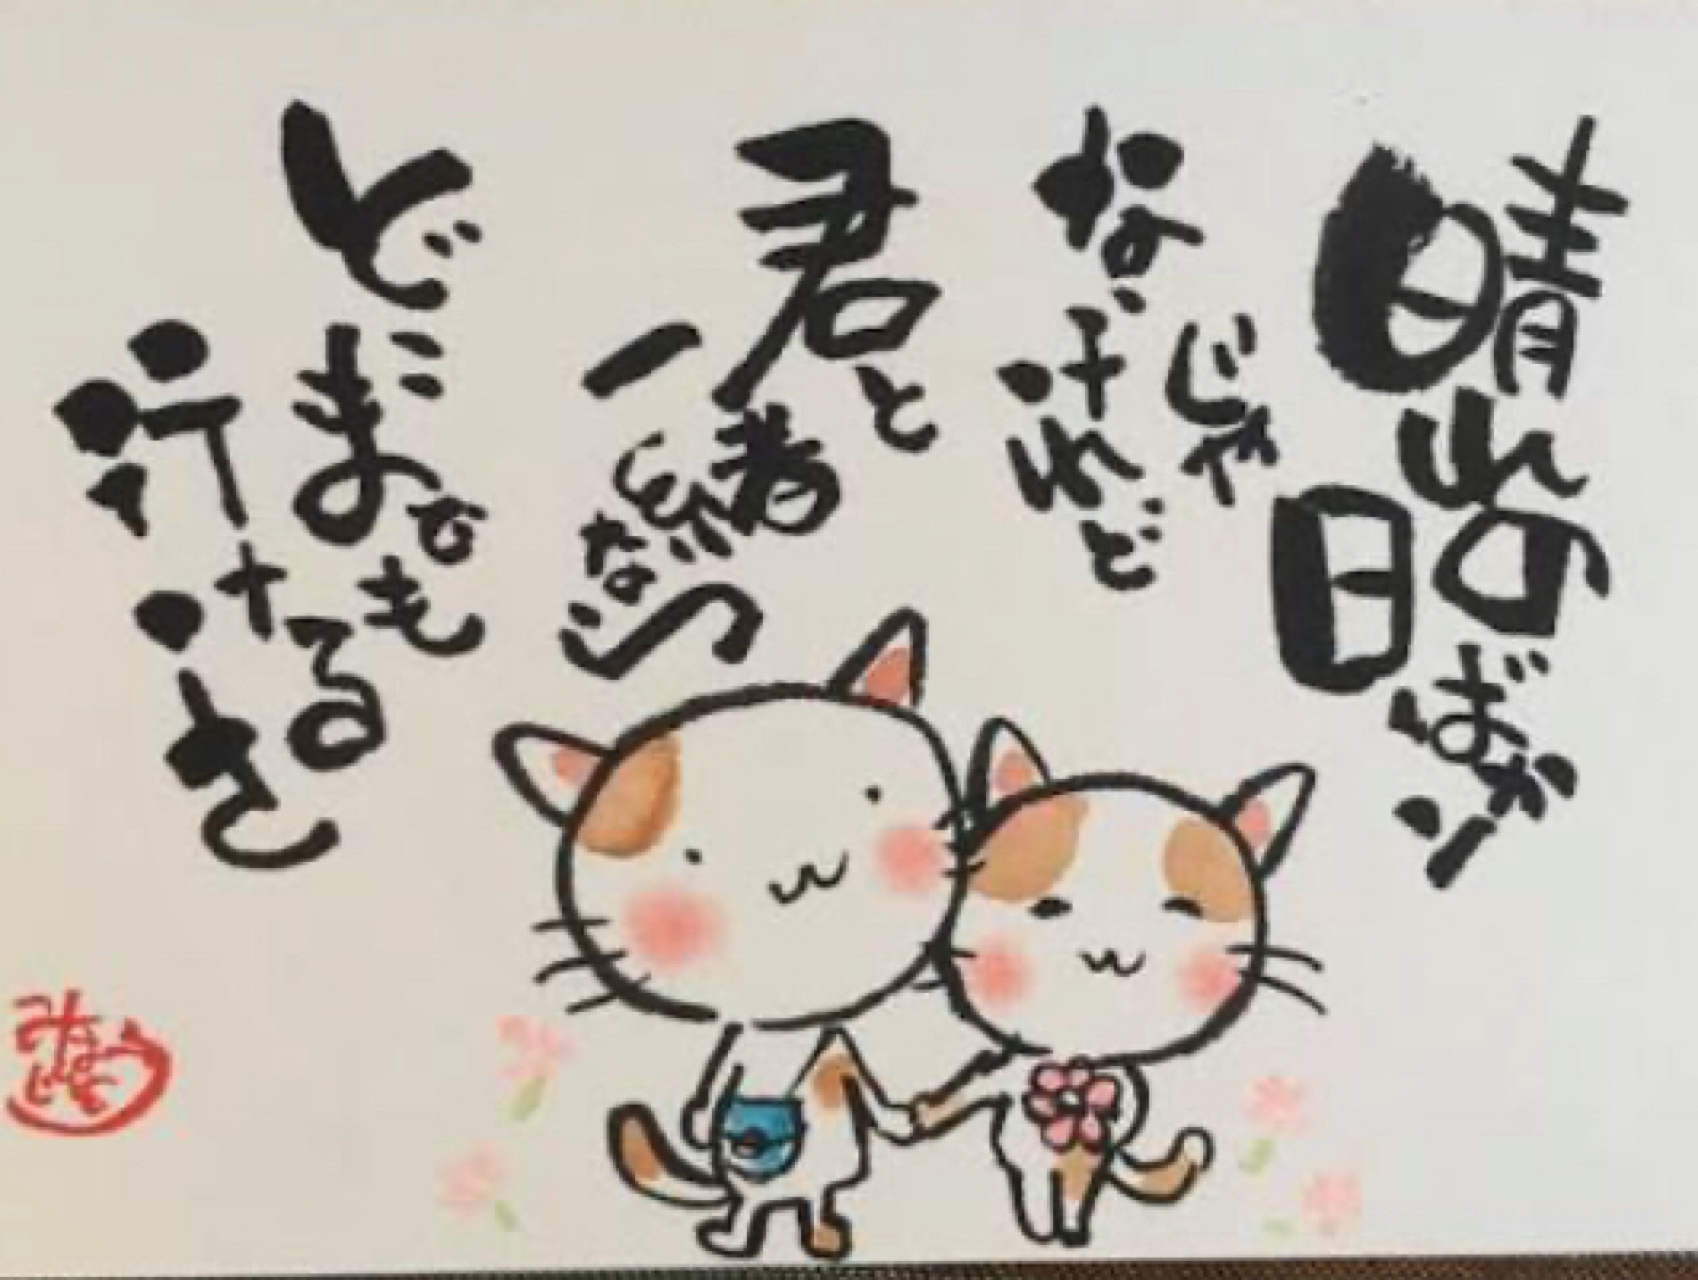 晴れの
日ばかり
じゃ
ないけれど
君と
一緒なら
どこまでも
行けるさ